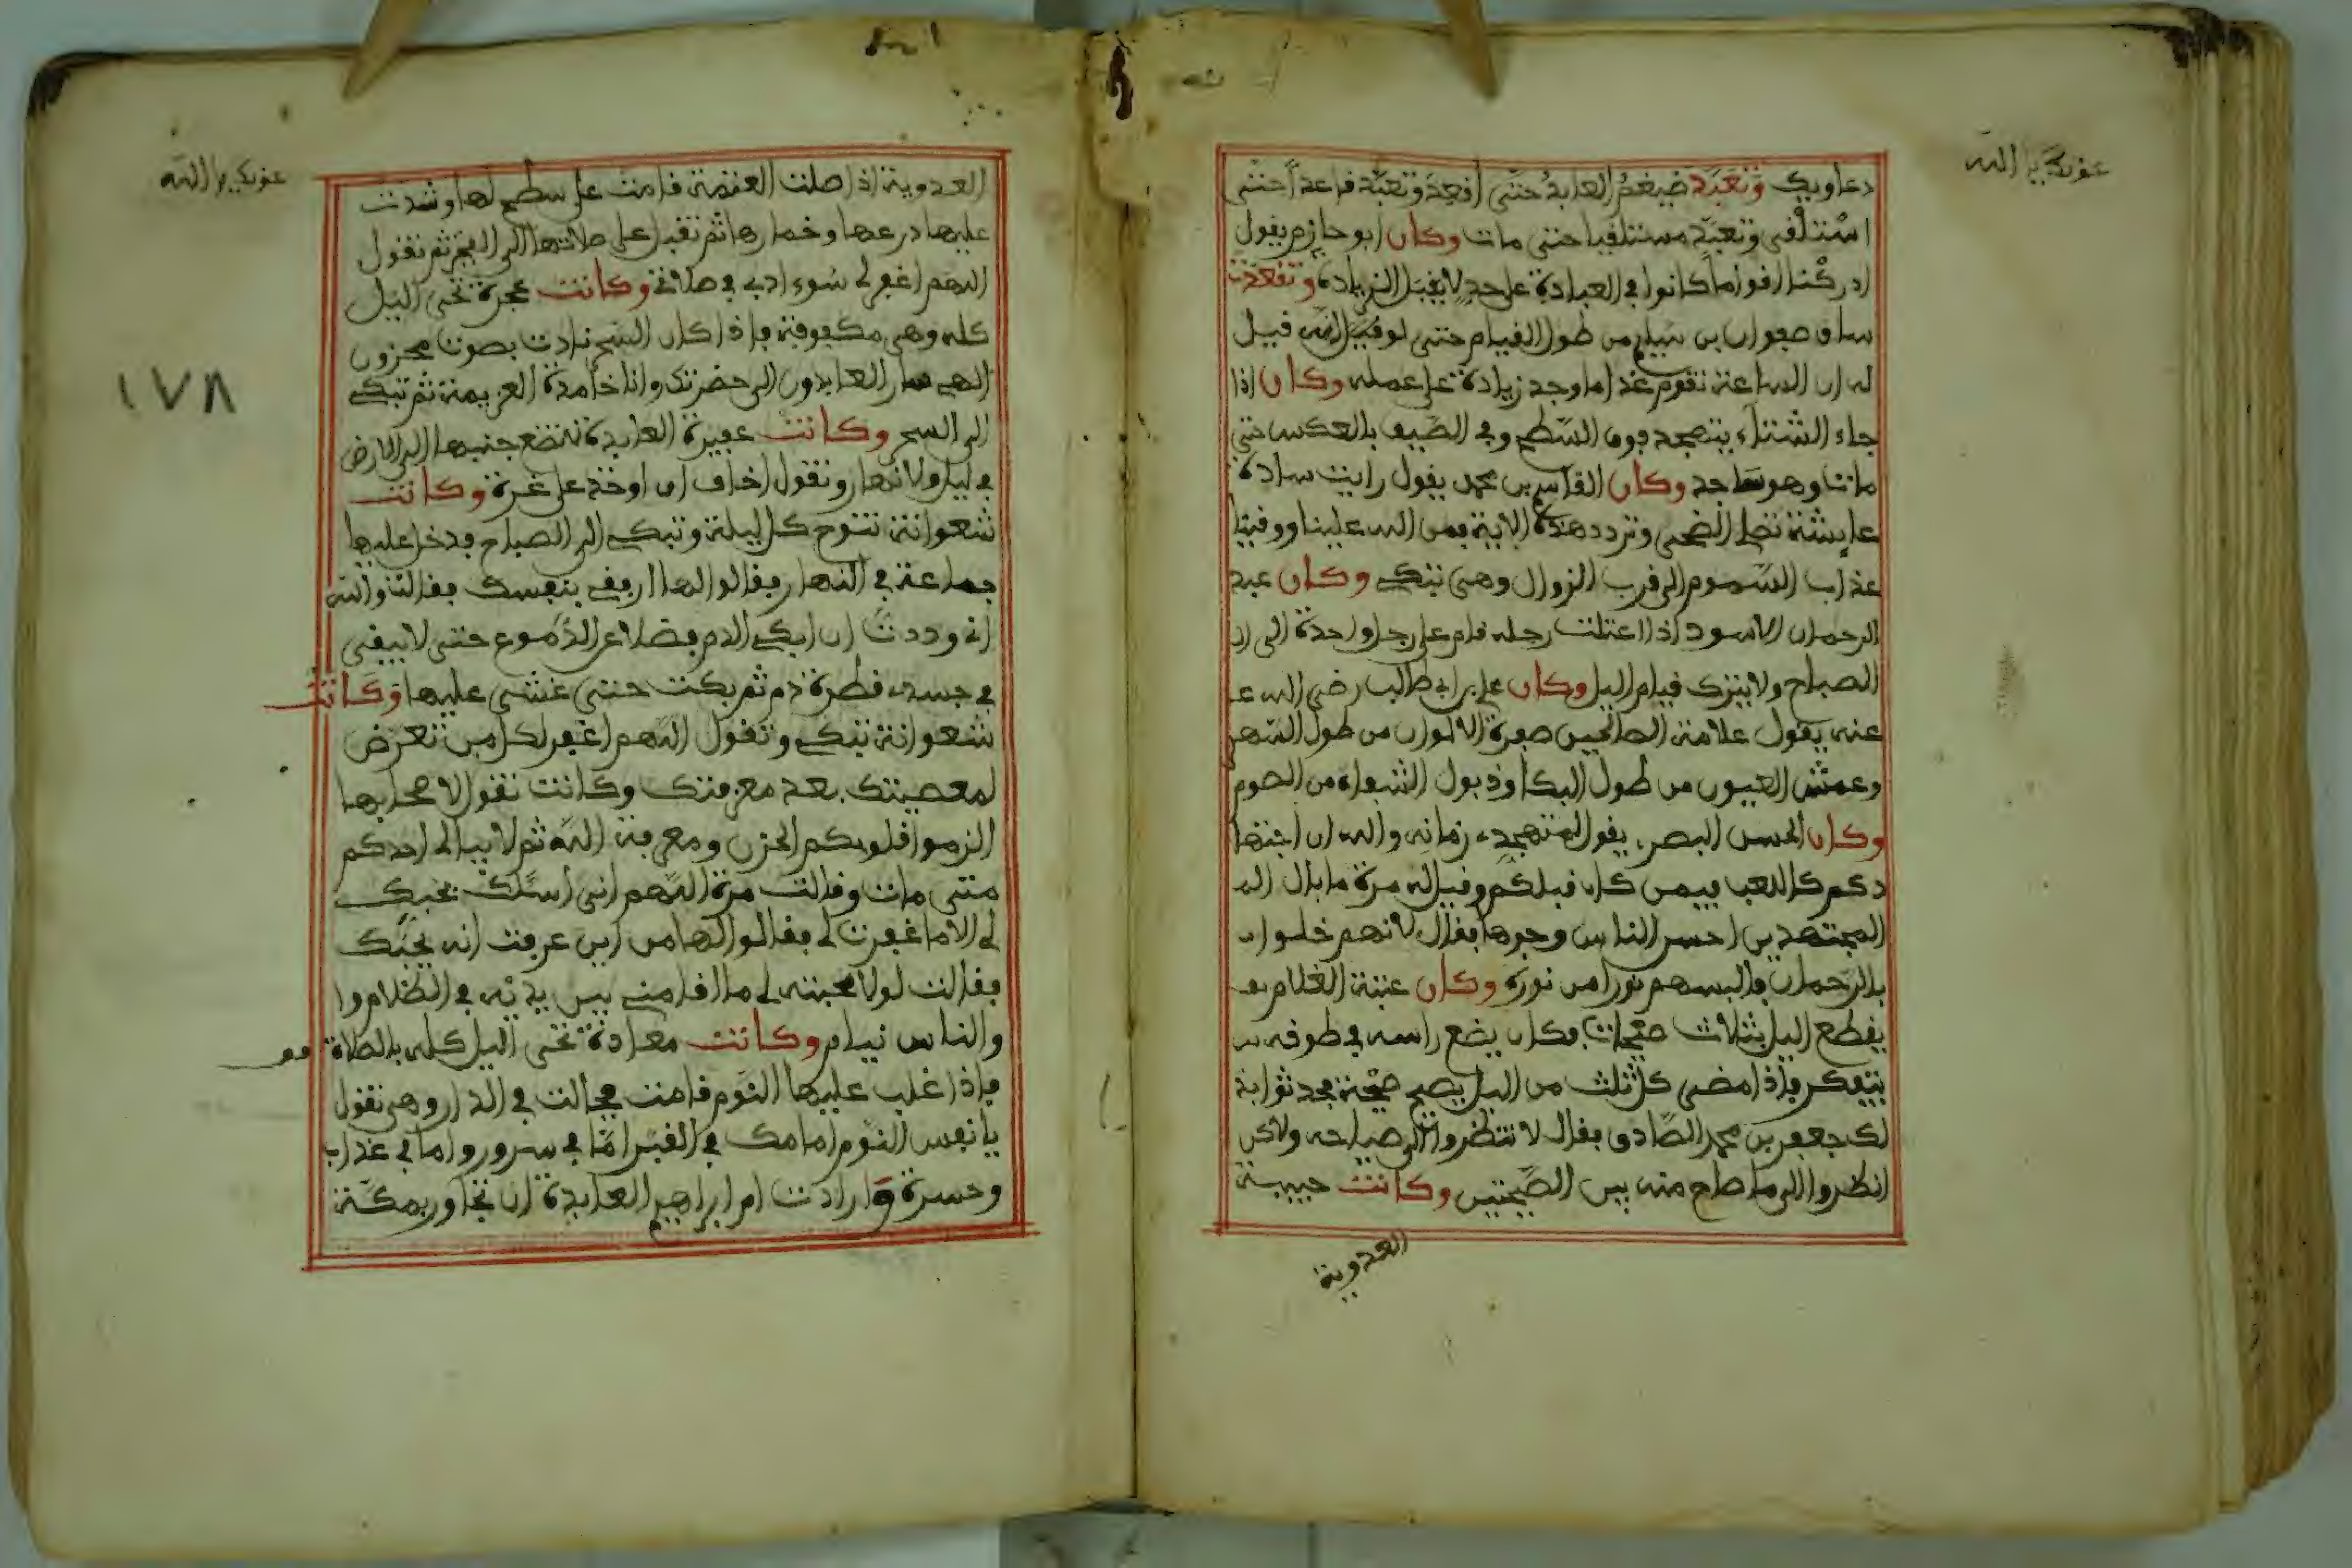 عونك يا الله
دعاويك وتعبد ضيغم العابد حتى اقعد وتعبد قاعدا حتى
استلقى وتعبد مستلقيا حتى مات وكان ابو حازم يقول
ادركنا اقواما كانوا في العبادة على حد لا يقبل الزيادة وتقعدت
ساق صفوان بن سليم من طول القيام حتى لو قيل له قيل
له ان الساعة تقوم غدا ما وجد زيادة على عمله وكان اذا
جاء الشتاء يتهجد فوق السطح وفي الصيف بالعكس حتى
مات وهو ساجد وكان القاسم بن محمد يقول رايت سادة
عايشة تصلي الضحى وتردد هذه الاية فمن الله علينا ووقينا
عذاب السموم الى قرب الزوال وهي تبكي وكان عبد
الرحمان الاسود اذا اعتلت رجله قام على رجل واحدة الى ان
الصباح ولا يترك قيام اليل وكان علي بن ابي طالب رضي الله عـ
عنه يقول علامة الصالحين صفرة الالوان من طول السهر
وعمش العيون من طول البكا وذبول الشفاه من الصوم
وكان الحسن البصري يقول لمتهجدي زمانه والله ان اجتها
دكم كاللعب فيمن كان قبلكم وقيل له مرة ما بال الـ
المجتهدين احسن الناس وجوها فقال لانهم خلوا
بالرحمان فالبسهم نورا من نوره وكان عتبة الغلام
يقطع اليل بثلاث صيحات فكان يضع راسه في طوقه
يتفكر فاذا مضى كل ثلث من اليل يصيح صيحة فحدثوا بذ
لك جعفر بن محمد الصادق فقال لا تنظروا الى صياحه ولاكن
انظروا الى ما صاح منه بين الصيحتين وكانت حبيبة
العدوية
عونك يا الله
العدوية اذا صلت العتمة قامت على سطح لها وشدت
عليها درعها وخمارها ثم تقبل على صلاتها الى الفجر ثم تقول
اللهم اغفر لي سوء ادبي في صلاتي وكانت عجرة تحيي اليل
كله وهي مكفوفة فاذا كان السحر نادت بصوت محزون
الهي سار العابدون الى حضرتك وانا خامدة العزيمة ثم تبكي
الى السحر وكانت عفيرة العابدة لا تضع جنبها الى الارض
في ليل ولا نهار وتقول اخاف ان اوخذ على غرة وكانت
شعوانة تنوح كل ليلة وتبكي الى الصباح فدخل عليها
جماعة في النهار فقالوا لها ارفقي بنفسك فقالت والله
اني وددت ان ابكي الدم فضلا عن الدموع حتى لا يبقى
في جسدي قطرة دم ثم بكت حتى غشي عليها وكانت
شعوانة تبكي وتقول اللهم اغفر لكل من تعرض
لمعصيتك بعد معرفتك وكانت تقول لاصحابها
الزموا قلوبكم الحزن ومعرفة الله ثم لا يبالي احدكم
متى مات وقالت مرة اللهم اني اسئلك بحبك
لي الا ما غفرت لي فقالوا لها من اين عرفت انه يحبك
فقالت لولا محبته لي ما اقامني بين يديه في الظلام وا
والناس نيام وكانت معاذة تحيي اليل كله بالصلاة
فاذا غلب عليها النوم قامت فجالت في الدار وهي تقول
يا نفس النوم امامك في القبر اما في سرور واما في عذاب
وحسرة وارادت ام ابراهيم العابدة ان تجاور بمكة
١٧٨